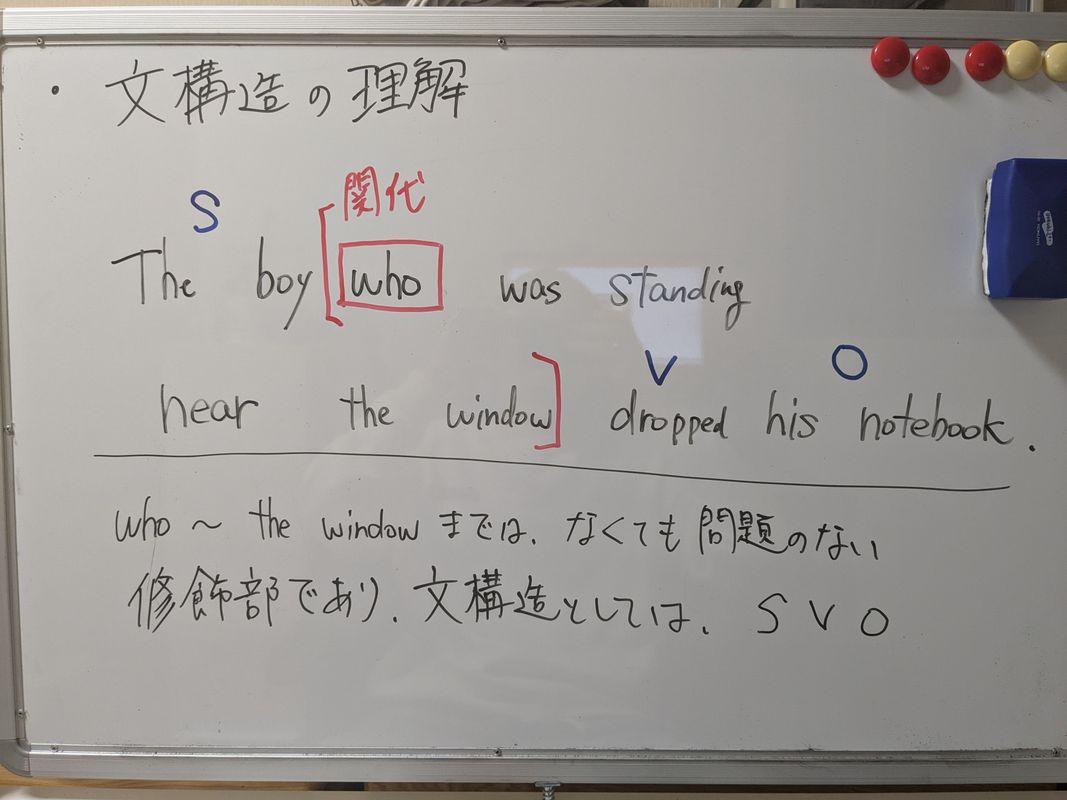 ・文構造の理解
S 関代
The boy [who was standing
V O
near the window] dropped his notebook.
who ～ the window までは、なくても問題のない
修飾部であり、文構造としては、S V O